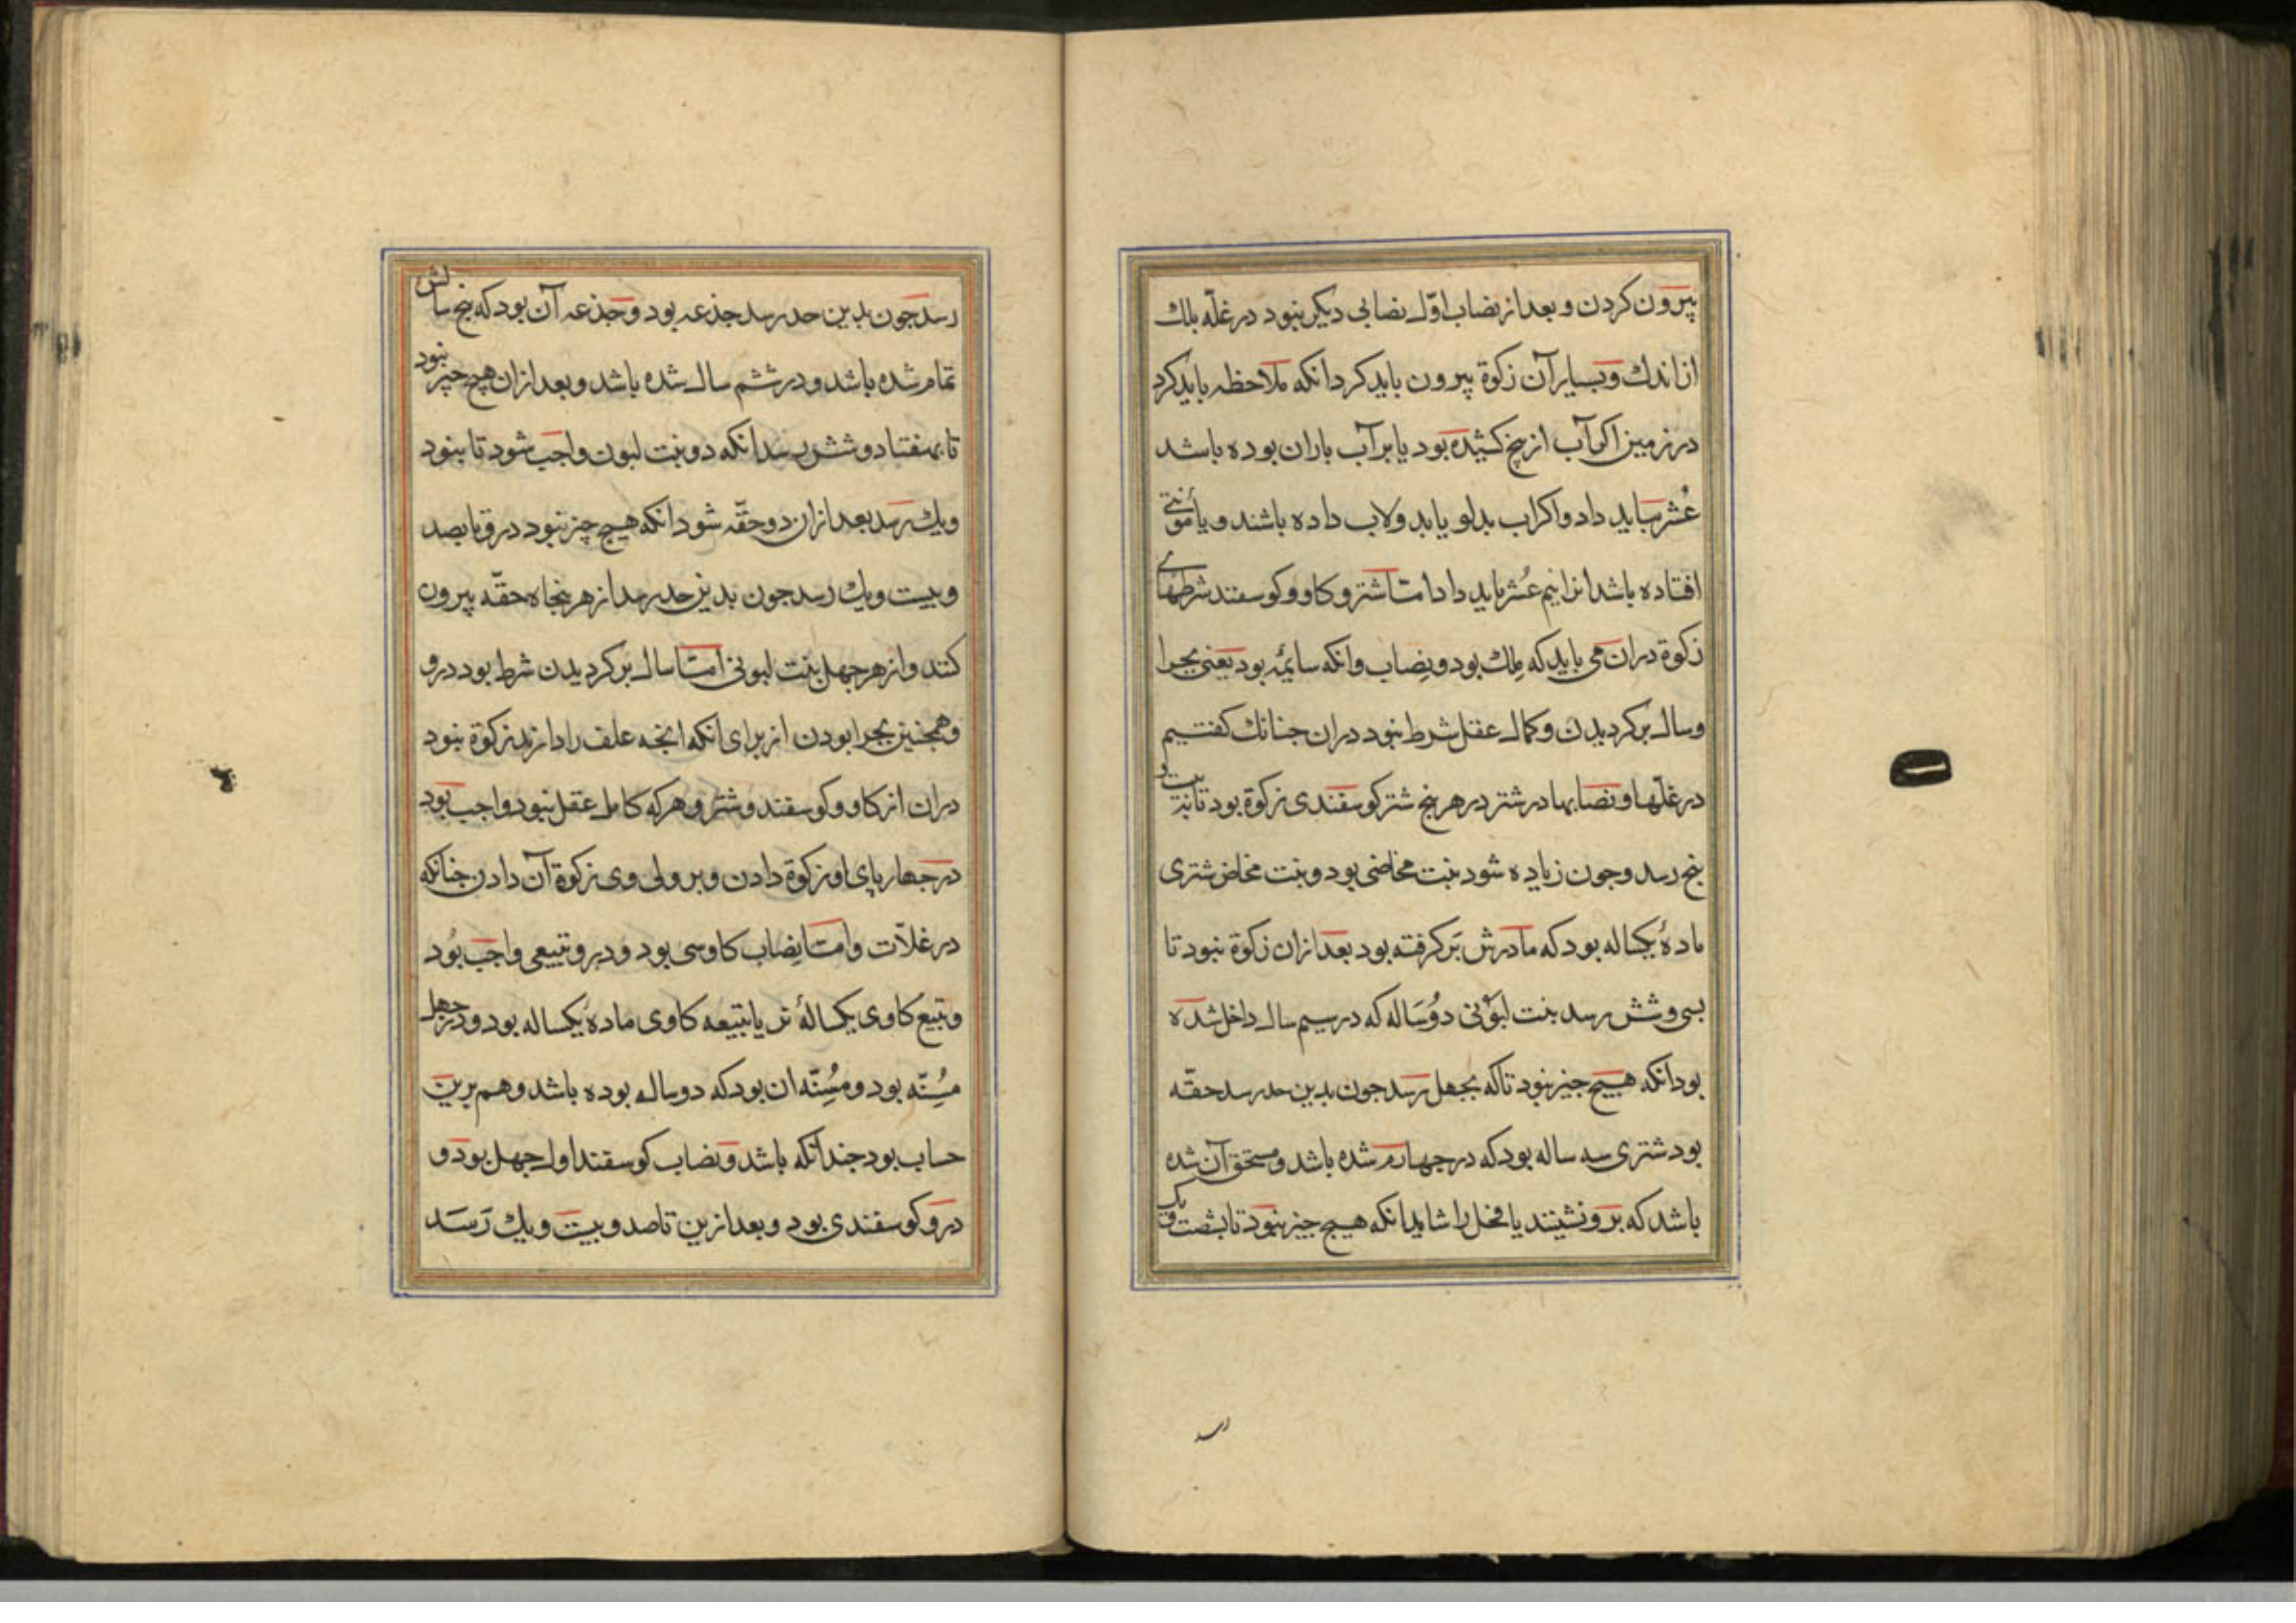 پیرون کردن و بعد از نصاب اوّل نصابی دیکر نبود در غلّه بلك
از اندك و بسیار آن زکوة پیرون باید کرد انکه ملاحظه باید کرد
در زمین اکر آب از یخ کشیده بود یا بر آب باران بوده باشد
عُشر بباید داد و اکر اب بدلو یا بدولاب داده باشند و یا مؤنتی
افتاده باشد انرا نیم عُشر باید داد امّا شتر و کاو و کوسفند شرطهای
زکوة دران می باید که مِلك بود و نِصاب وانکه سایمُه بود یعنی بجرا
وسال بر کردیدن و کمال عقل شرط نبود دران جنانك کفتیم
در غلّها و نصابها در شتر در هر پنج شتر کوسفندی زکوة بود تا بیست و
پنج رسد وجون زیاده شود بنت مخاضی بود و بنت مخاض شتری
مادهٔ یکساله بود که مادرش بَر کرفته بود بعد ازان زکوة نبود تا
بسی وشش رسد بنت لبوُنی دوُسَاله که در سیم سال داخل شده
بود انکه هیچ جیز نبود تا که بجهل رسد جون بدین حد رسد حقّه
بود شتری سه ساله بود که در جهارم شده باشد و مستحق آن شده
باشد که برو نشینند یا فحل را شاید انکه هیج جیز نبود تا بشصت و یک
رسد
رسد جون بدین حد رسد جذعه بود و جذعه آن بود که پنج سالش
تمام شده باشد و در ششم سال شده باشد و بعد ازان هیچ جیز نبود
تا بهفتاد و شش رسد انکه دو بنت لبون واجب شود تا بنود
ویك رسد بعد ازان دو حقّه شود انکه هیچ چیز نبود درو تا بصد
وبیست ویك رسد جون بدین حد رسد از هر پنجاه حقّه پیرون
کنند واز هر جهل بنت لبونی امّا سال بر کردیدن شرط بود درو
وهمجنین بجرا بودن از برای انکه انجه علف را دارند زکوة نبود
دران از کاو و کوسفند و شتر و هرکه کامل عقل نبود واجب بود
در جهار پای او زکوة دادن و بر ولی وی زکوة آن دادن جنانکه
در غلاّت وامّا نِصاب کاو سی بود و درو تبیعی واجب بُود
و تبیع کاوی یکسالهٔ نر یا تبیعه کاوی مادهٔ یکساله بود و در جهل
مُسِنّه بود و مُسِنّه ان بود که دو ساله بوده باشد و هم برین
حساب بود جندانکه باشد و نصاب کوسفند اول جهل بود و
درو کوسفندی بود و بعد ازین تا صد و بیت و یك رَسَد